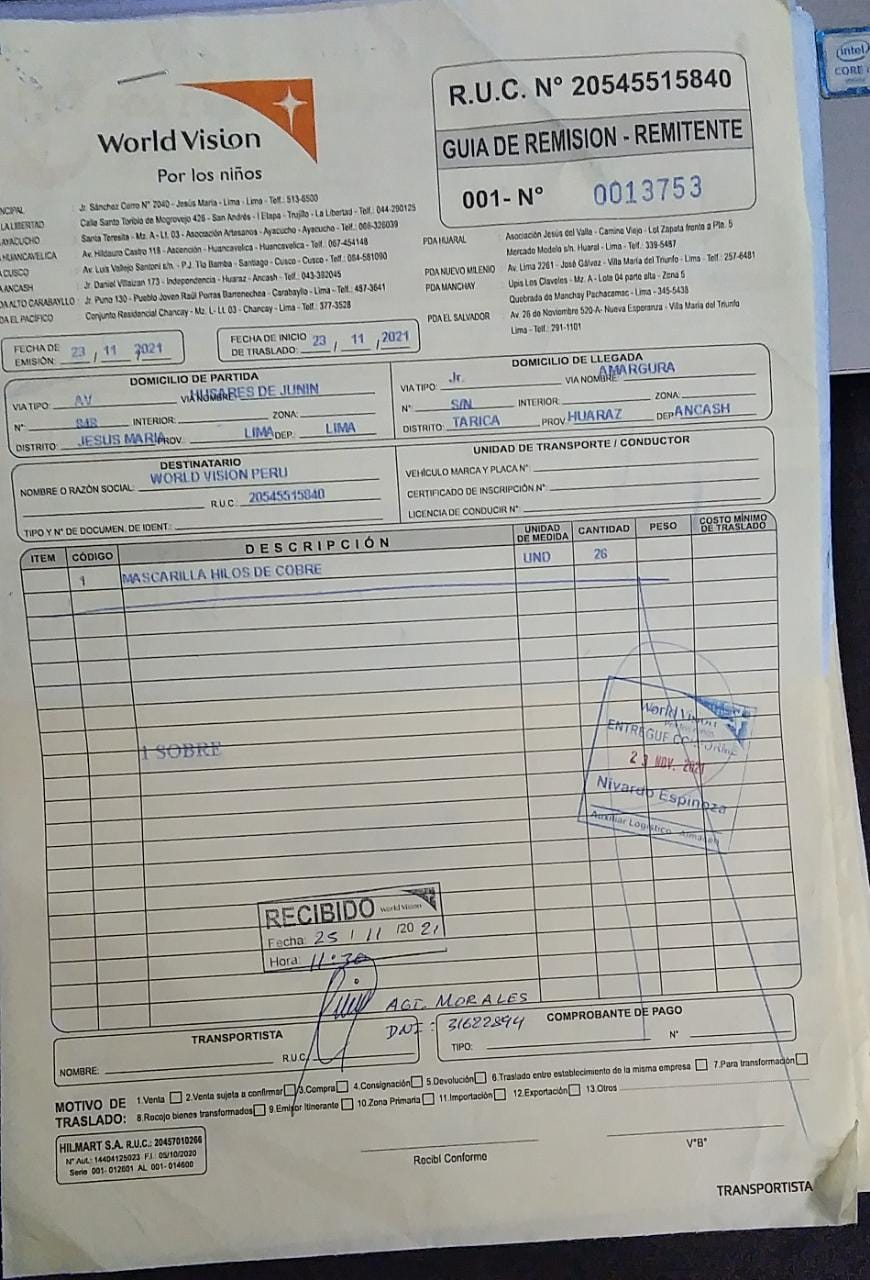 intel
CORE
World Vision
Por los niños
R.U.C. N° 20545515840
GUIA DE REMISION - REMITENTE
001- N° 0013753
NCIPAL : Jr. Sánchez Cerro N° 2040 - Jesús María - Lima - Lima - Telf.: 513-6500
LA LIBERTAD : Calle Santo Toribio de Mogrovejo 426 - San Andrés - I Etapa - Trujillo - La Libertad - Telf.: 044-290125
AYACUCHO : Santa Teresita - Mz. A - Lt. 03 - Asociación Artesanos - Ayacucho - Ayacucho - Telf.: 066-326039
HUANCAVELICA : Av. Hildauro Castro 118 - Ascención - Huancavelica - Huancavelica - Telf.: 067-454148
CUSCO : Av. Luis Vallejo Santoni s/n. - P.J. Tío Bamba - Santiago - Cusco - Cusco - Telf.: 084-581090
ANCASH : Jr. Daniel Villaizan 173 - Independencia - Huaraz - Ancash - Telf.: 043-392045
DA ALTO CARABAYLLO : Jr. Puno 130 - Pueblo Joven Raúl Porras Barrenechea - Carabayllo - Lima - Telf.: 487-3641
DA EL PACÍFICO : Conjunto Residencial Chancay - Mz. L - Lt. 03 - Chancay - Lima - Telf.: 377-3528
PDA HUARAL : Asociación Jesús del Valle - Camino Viejo - Lot Zapata frente a Pte. 5
Mercado Modelo s/n. Huaral - Lima - Telf.: 339-5487
PDA NUEVO MILENIO : Av. Lima 2261 - José Gálvez - Villa María del Triunfo - Lima - Telf.: 257-6481
PDA MANCHAY : Upis Los Claveles - Mz. A - Lote 04 parte alta - Zona 5
Quebrada de Manchay Pachacamac - Lima - 345-5438
PDA EL SALVADOR : Av. 26 de Noviembre 520-A- Nueva Esperanza - Villa María del Triunfo
Lima - Telf.: 291-1101
FECHA DE EMISIÓN: 23 / 11 / 2021
FECHA DE INICIO DE TRASLADO: 23 / 11 / 2021
DOMICILIO DE PARTIDA
VIA TIPO: AV VIA NOMBRE: HUSARES DE JUNIN
N°: INTERIOR: ZONA:
DISTRITO: JESUS MARIA PROV.: LIMA DEP.: LIMA
DOMICILIO DE LLEGADA
VIA TIPO: Jr. VIA NOMBRE: AMARGURA
N°: S/N INTERIOR: ZONA:
DISTRITO: TARICA PROV HUARAZ DEP. ANCASH
DESTINATARIO
NOMBRE O RAZÓN SOCIAL: WORLD VISION PERU
R.U.C. 20545515840
TIPO Y N° DE DOCUMEN. DE IDENT.:
UNIDAD DE TRANSPORTE / CONDUCTOR
VEHÍCULO MARCA Y PLACA N°:
CERTIFICADO DE INSCRIPCIÓN N°:
LICENCIA DE CONDUCIR N°:
ITEM CÓDIGO DESCRIPCIÓN UNIDAD DE MEDIDA CANTIDAD PESO COSTO MÍNIMO DE TRASLADO
1 MASCARILLA HILOS DE COBRE UND 26
1 SOBRE
World Vision
ENTREGUE CONFORME
23 NOV. 2021
Nivardo Espinoza
Auxiliar Logístico - Almacén
RECIBIDO World Vision
Fecha: 25 / 11 /20 21
Hora: 11:30
AGT. MORALES
DNI : 31622894
TRANSPORTISTA
NOMBRE: R.U.C.:
COMPROBANTE DE PAGO
TIPO: N°
MOTIVO DE TRASLADO:
1.Venta 2.Venta sujeta a confirmar 3.Compra 4.Consignación 5.Devolución 6.Traslado entre establecimiento de la misma empresa 7.Para transformación
8.Recojo bienes transformados 9.Emisor Itinerante 10.Zona Primaria 11.Importación 12.Exportación 13.Otros
HILMART S.A. R.U.C.: 20457010266
N° Aut.: 14404125023 F.I.: 05/10/2020
Serie 001- 012601 AL 001- 014600
Recibí Conforme
V°B°
TRANSPORTISTA